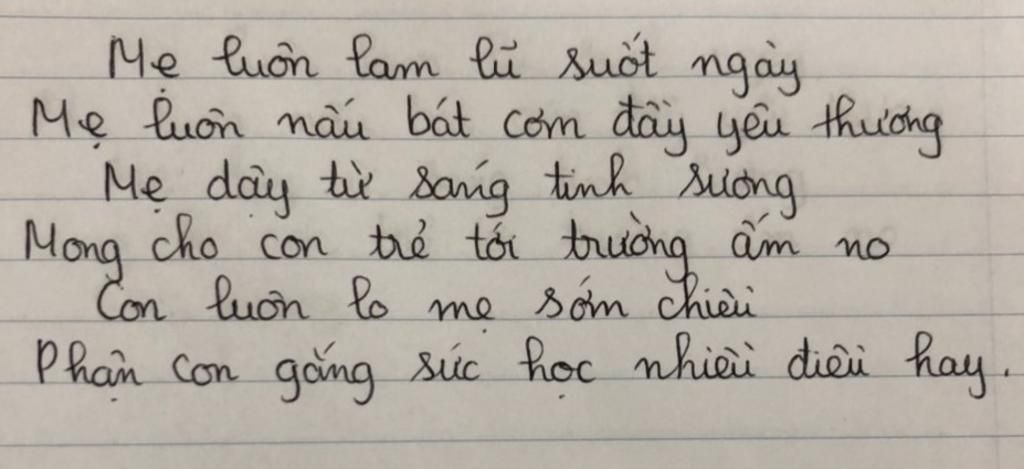 Mẹ luôn lam lũ suốt ngày
Mẹ luôn nấu bát cơm đầy yêu thương
Mẹ dậy từ sáng tinh sương
Mong cho con trẻ tới trường ấm no
Con luôn lo mẹ sớm chiều
Phận con gắng sức học nhiều điều hay.